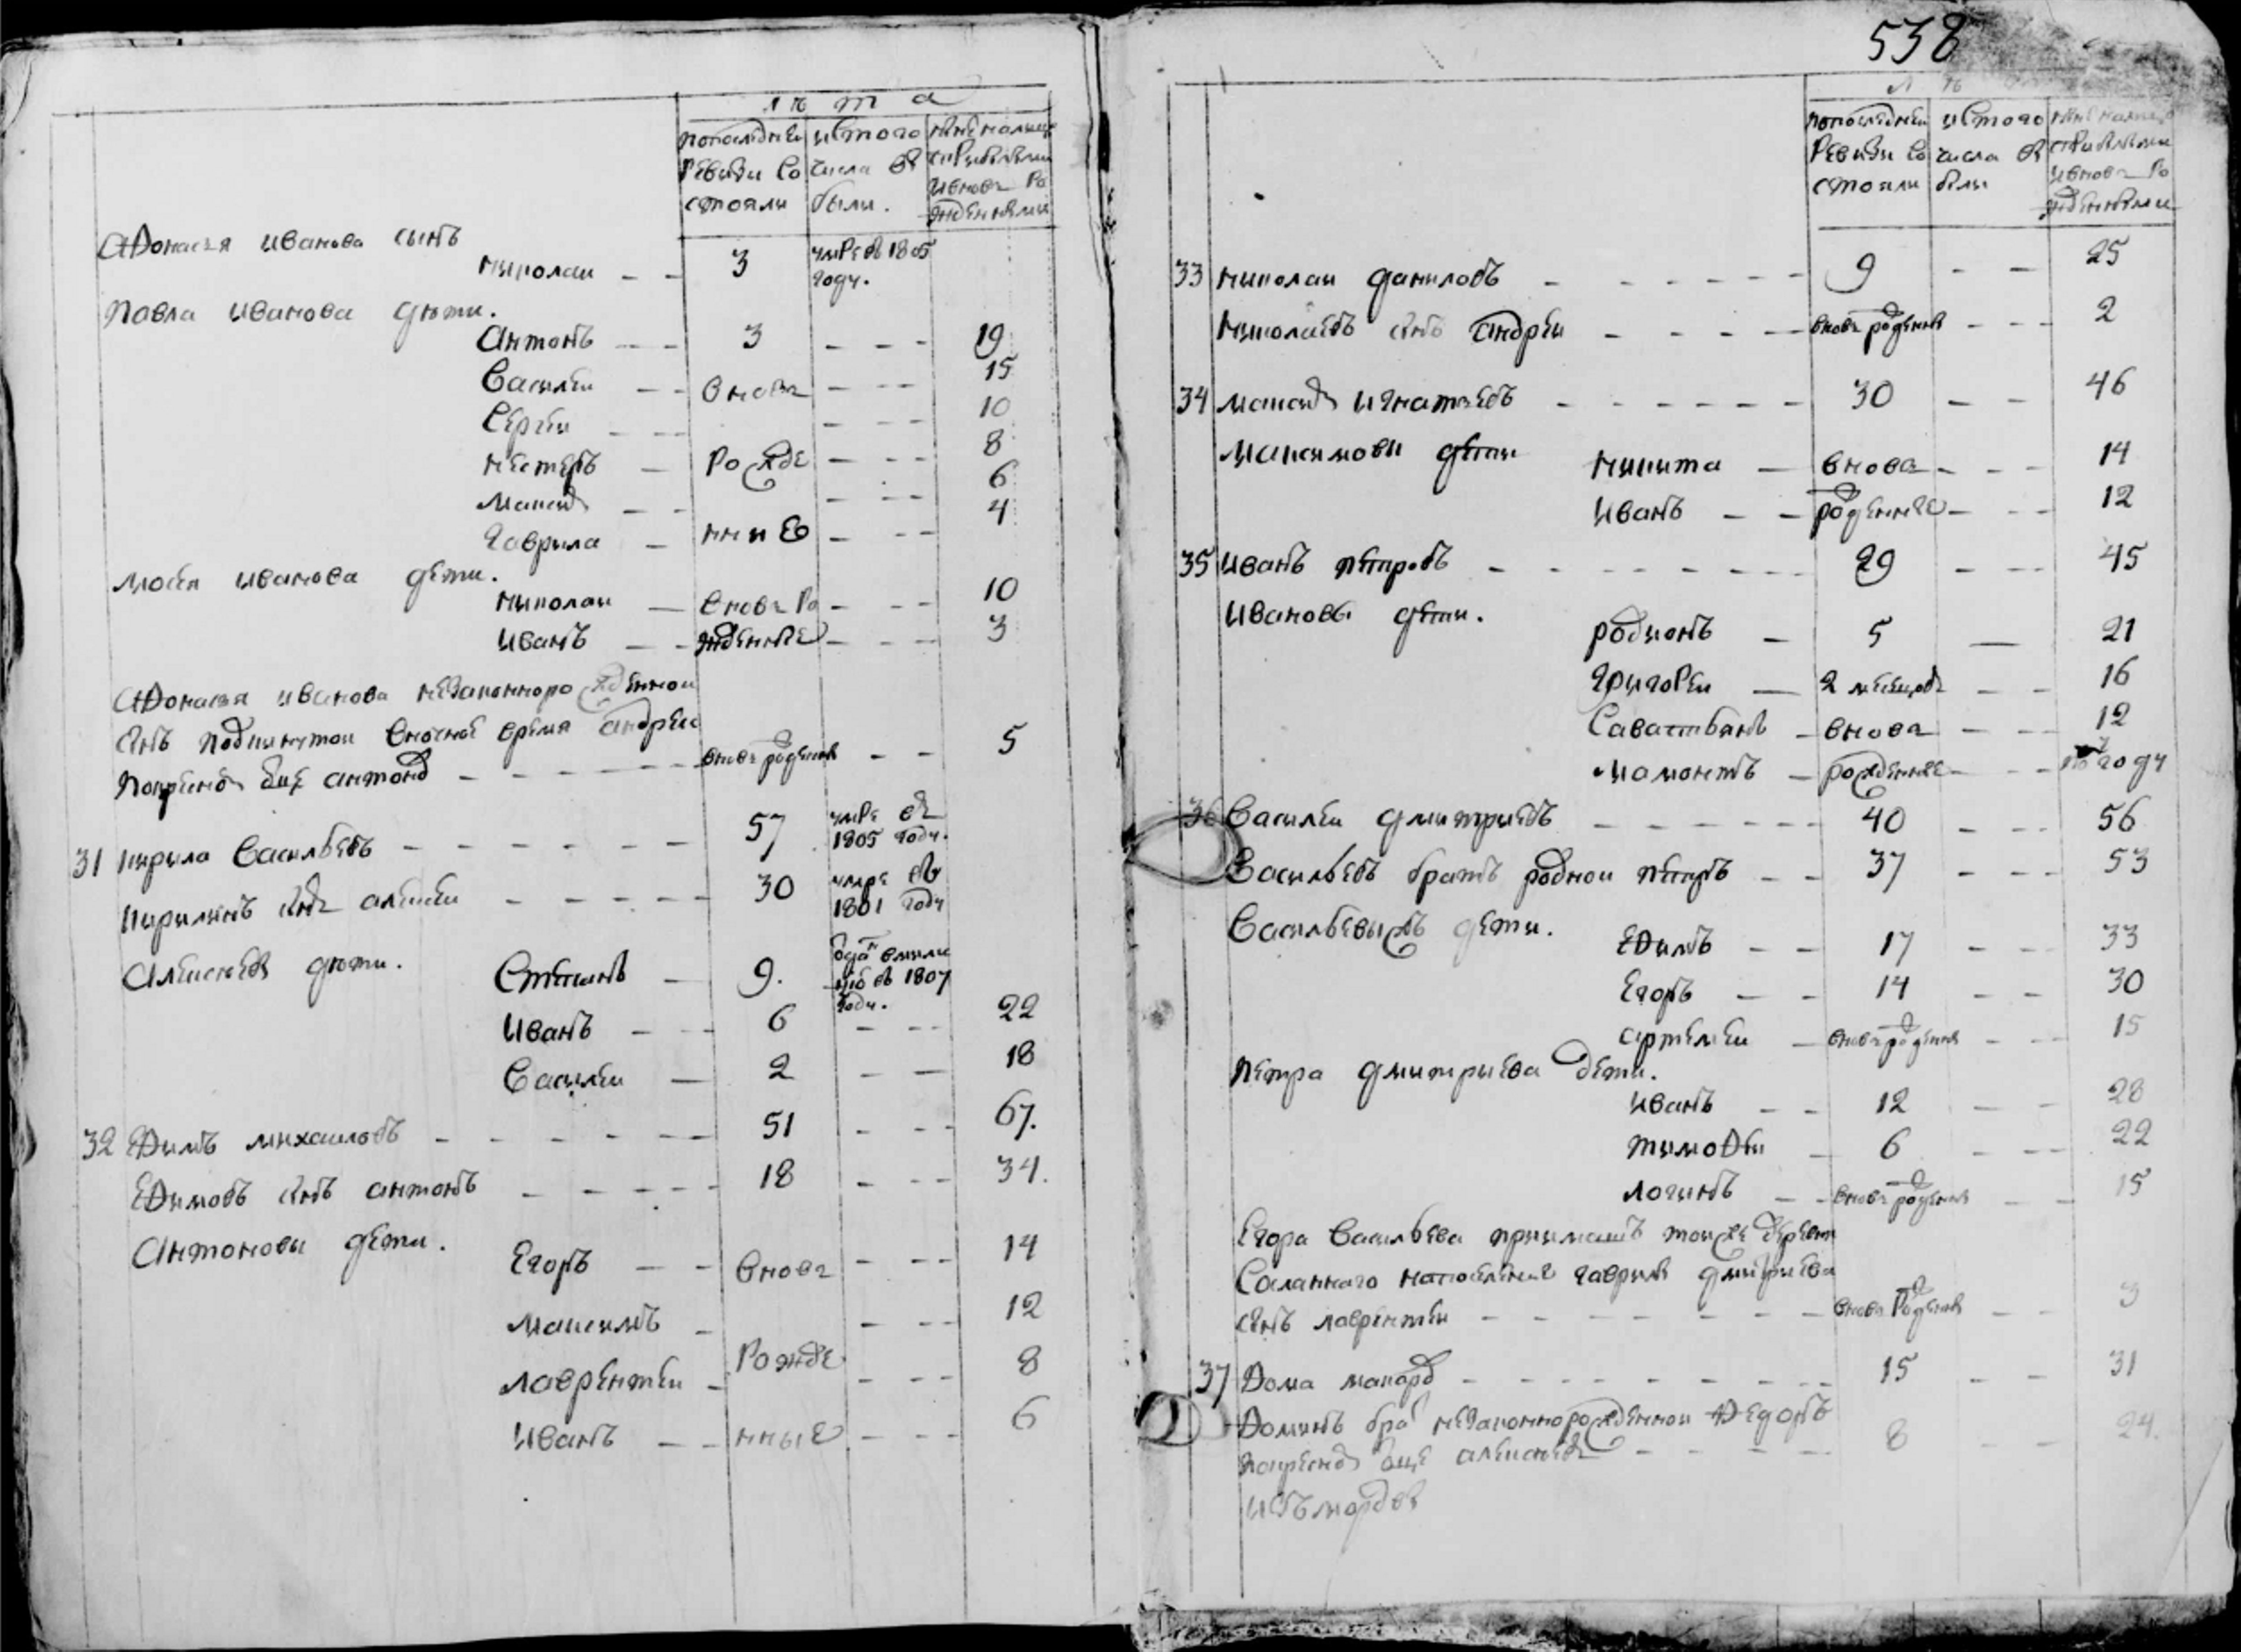 лѣта
попоследнеи ревизи состояли
исътого числа выбыли.
ныне налицо сприбылыми ивновь рожденными
Афонасья иванова сынъ
николаи 3 умре въ 1805 году.
Павла иванова дѣти.
Антонъ 3 19
Василеи вновь 15
Сергеи 10
нестеръ рожде 8
максимъ 6
гаврила нные 4
мосея иванова дети.
николаи вновь ро 10
иванъ жденные 3
Афонасья иванова незаконнорожденнои
сынъ подкинутои вночное время андреи
покрестно отцу антоновъ вновь рожденъ 5
31 кирила васильевъ 57 умре въ 1805 году.
кирилинъ сынъ алексеи 30 умре въ 1801 году
Алексеевы дѣти.
Степанъ 9. отдат вмилицию въ 1807 году.
иванъ 6 22
Василеи 2 18
32 Ефимъ михаиловъ 51 67.
Ефимовъ сынъ антонъ 18 34.
Антоновы дети.
Егоръ вновь 14
максимъ 12
лаврентеи рожде 8
иванъ нные 6
538
лѣ
попоследнеи ревизи состояли
исътого числа выбыли
ныне налицо сприбылыми ивновь рожденными
33 николаи даниловъ 9 25
николаевъ сынъ андреи вновь рожденъ 2
34 максимъ игнатьевъ 30 46
максимовы дети
никита вновь 14
иванъ рожденные 12
35 иванъ петровъ 29 45
ивановы дети.
родионъ 5 21
григореи 2 месецовъ 16
Саватьянъ вновь 12
мамонтъ рожденные году
36 Василеи дмитриевъ 40 56
Васильевъ братъ роднои петръ 37 53
Васильевыхъ дети.
Ефимъ 17 33
Егоръ 14 30
артемеи вновь рожденъ 15
петра дмитриева дети.
иванъ 12 28
тимофеи 6 22
логинъ вновь рожденъ 15
Егора васильева приимашъ тоиже деревни
гаврилы дмитриева
сынъ лаврентеи вновь рожденъ 3
37 Фома макаровъ 15 31
Фоминъ братъ незаконнорожденнои Федоръ
покрестно отцу алексеевъ 8 24.
изъмордвы